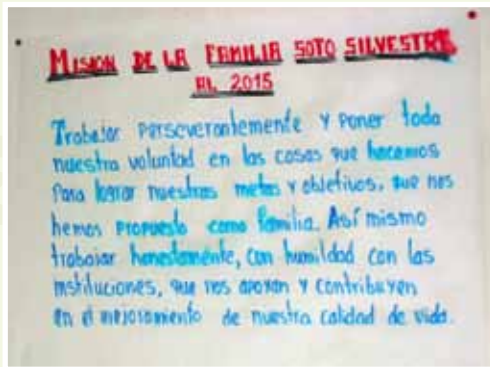 MISION DE LA FAMILIA SOTO SILVESTRE
AL 2015
Trabajar perseverantemente y poner toda
nuestra voluntad en las cosas que hacemos
para lograr nuestras metas y objetivos, que nos
hemos propuesto como familia. Así mismo
trabajar honestamente, con humildad con las
instituciones, que nos apoyan y contribuyen
en el mejoramento de nuestra calidad de vida.